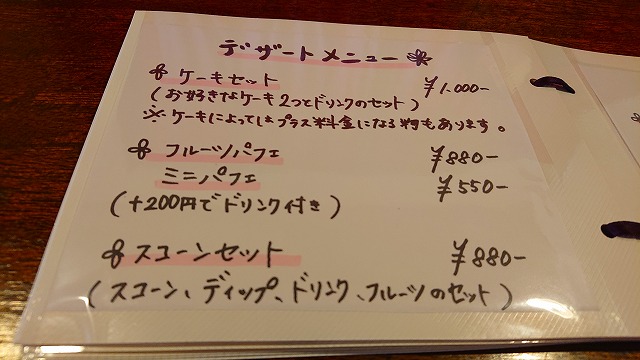 デザートメニュー
ケーキセット ¥1,000-
(お好きなケーキ2つとドリンクのセット)
※ケーキによってはプラス料金になる物もあります。
フルーツパフェ ¥880-
ミニパフェ ¥550-
(+200円でドリンク付き)
スコーンセット ¥880-
(スコーン、ディップ、ドリンク、フルーツのセット)